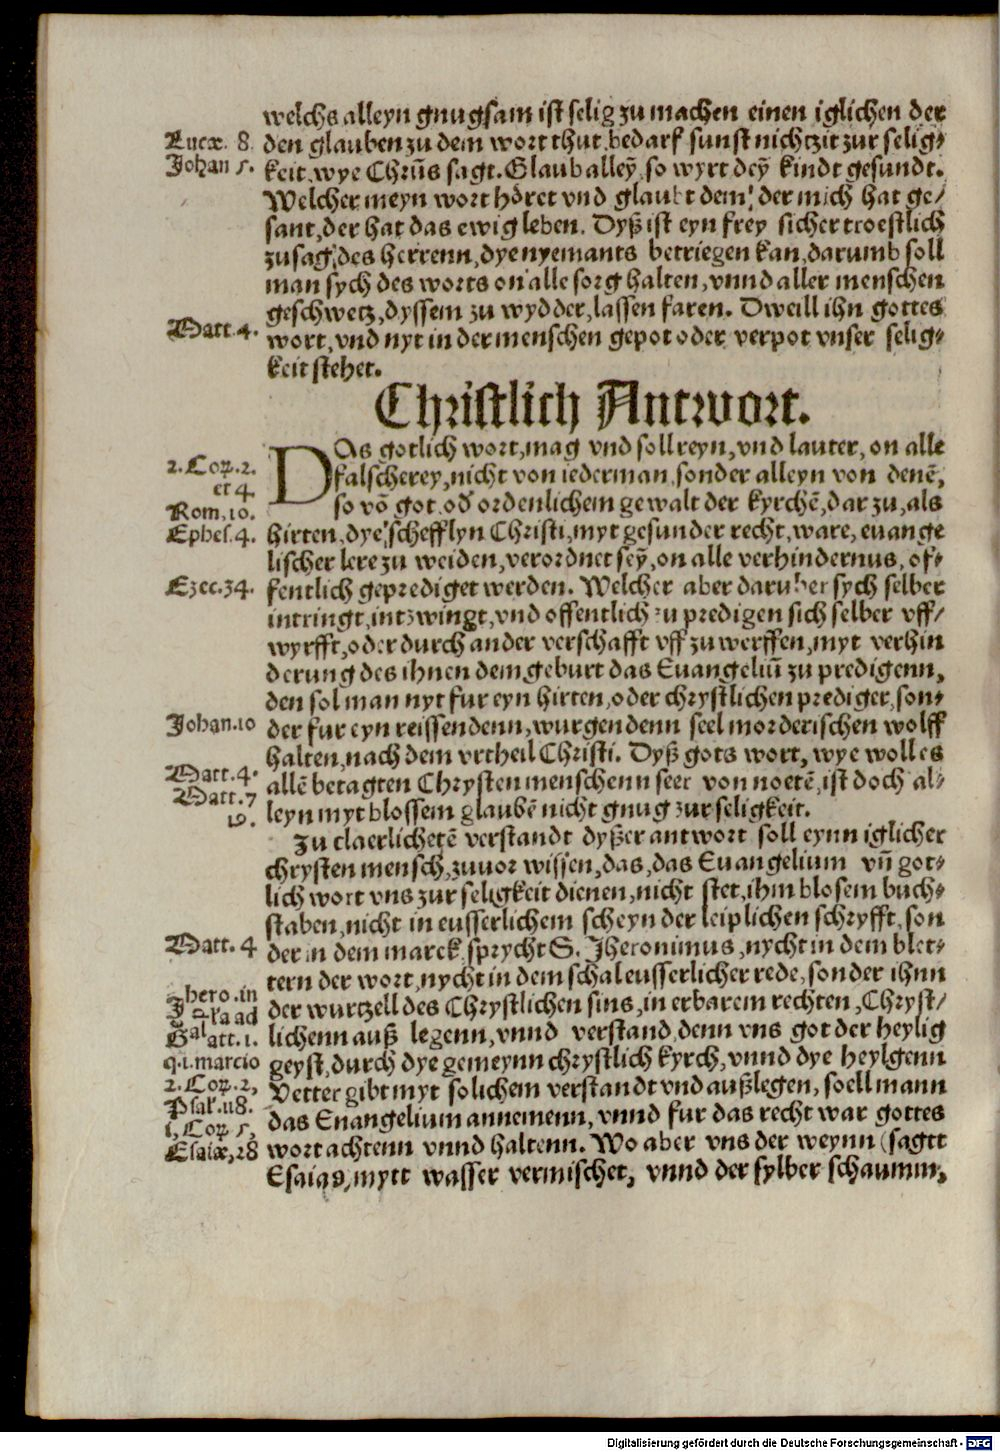 welchs alleyn gnugsam ist selig zu machen einen iglichen der
Lucæ. 8. den glauben zu dem wort thut, bedarf sunst nichtzit zur selig⸗
Johan 5. keit, wye Chrūs sagt. Glaub alleȳ, so wyrt deȳ kindt gesundt.
Welcher meyn wort höret vnd glaubt dem, der mich hat ge/
sant, der hat das ewig leben. Dyß ist eyn frey sicher troestlich
zusag, des herrenn, dye nyemants betriegen kan, darumb soll
man sych des worts on alle sorg halten, vnnd aller menschen
geschwetz, dyssem zu wydder, lassen faren. Dweill ihn gottes
Matt. 4. wort, vnd nyt in der menschen gepot oder verpot vnser selig⸗
keit stehet.
Christlich Antwort.
DAs gotlich wort, mag vnd soll reyn, vnd lauter, on alle
2. Cor. 2. falscherey, nicht von iederman, sonder alleyn von denē,
et 4. so vō got, od' ordenlichem gewalt der kyrchē, dar zu, als
Rom, 10.
Ephes. 4. hirten, dye schefflyn Christi, myt gesunder recht, ware, euange
lischer lere zu weiden, verordnet seȳ, on alle verhindernus, of⸗
Ezec. 34. fentlich geprediget werden. Welcher aber daruber sych selber
intringt, intzwingt, vnd offentlich zu predigen sich selber vff/
wyrfft, oder durch ander verschafft vff zu werffen, myt verhin
derung des ihnen dem geburt das Euangeliū zu predigenn,
den sol man nyt fur eyn hirten, oder chrystlichen prediger, son⸗
Johan. 10 der fur eyn reissendenn, wurgendenn seelmorderischen wolff
halten, nach dem vrtheil Christi. Dyß gots wort, wye woll es
Matt. 4. allē betagten Chrysten menschenn seer von noetē, ist doch al⸗
Matt. 7
19. leyn myt blossem glaubē nicht gnug zur seligkeit.
Zu claerlicherē verstandt dyßer antwort soll eynn iglicher
chrysten mensch, zuuor wissen, das, das Euangelium vn̄ got⸗
lich wort vns zur seligkeit dienen, nicht stet, ihm blosem buch⸗
staben, nicht in eusserlichem scheyn der leiplichen schryfft, son
Matt. 4 der in dem marck, sprycht S. Jheronimus, nycht in dem blet⸗
tern der wort, nycht in dem schal eusserlicher rede, sonder ihnn
Jhero. in der wurtzell des Chrystlichen sins, in erbarem rechten, Chryst/
ad
Galatt. 1. lichenn auß legenn, vnnd verstand, denn vns got der heylig
q. 1. marcio geyst, durch dye gemeynn chrystlich kyrch, vnnd dye heylgenn
2. Cor. 2, Vetter gibt myt solichem verstandt vnd außlegen, soell mann
Psal. 118. das Euangelium annemenn, vnnd fur das recht war gottes
1, Cor. 5,
Esaiæ, 28 wort achtenn vnnd haltenn. Wo aber vns der weynn (sagtt
Esaias, mytt wasser vermischet, vnnd der sylber schaumm,
Digitalisierung gefördert durch die Deutsche Forschungsgemeinschaft - DFG